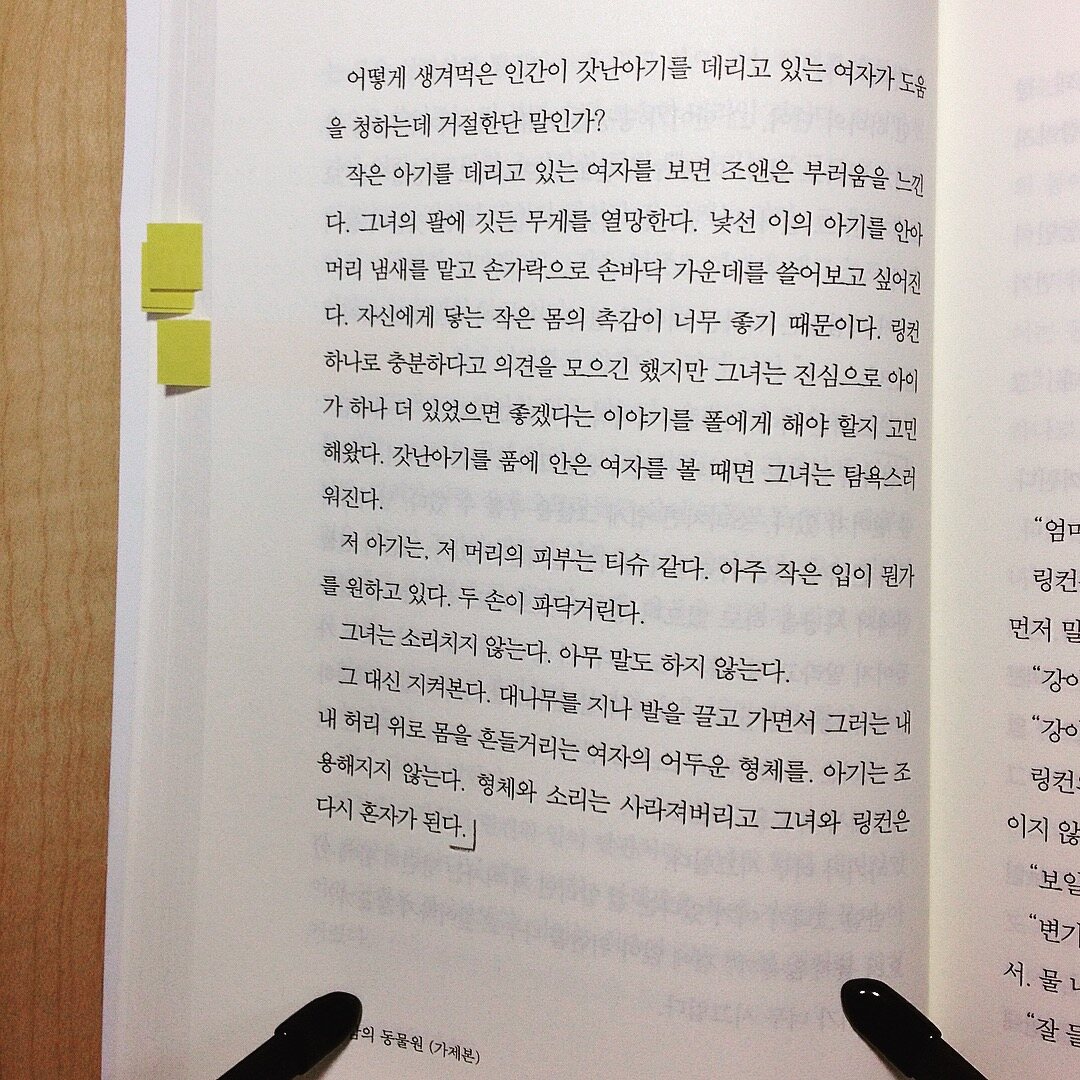 어떻게 생겨먹은 인간이 갓난아기를 데리고 있는 여자가 도움
을 청하는데 거절한단 말인가?
작은 아기를 데리고 있는 여자를 보면 조앤은 부러움을 느낀
다. 그녀의 팔에 깃든 무게를 열망한다. 낯선 이의 아기를 안아
머리 냄새를 맡고 손가락으로 손바닥 가운데를 쓸어보고 싶어진
다. 자신에게 닿는 작은 몸의 촉감이 너무 좋기 때문이다. 링컨
하나로 충분하다고 의견을 모으긴 했지만 그녀는 진심으로 아이
가 하나 더 있었으면 좋겠다는 이야기를 폴에게 해야 할지 고민
해왔다. 갓난아기를 품에 안은 여자를 볼 때면 그녀는 탐욕스러
워진다.
저 아기는, 저 머리의 피부는 티슈 같다. 아주 작은 입이 뭔가
를 원하고 있다. 두 손이 파닥거린다.
그녀는 소리치지 않는다. 아무 말도 하지 않는다.
그 대신 지켜본다. 대나무를 지나 발을 끌고 가면서 그러는 내
내 허리 위로 몸을 흔들거리는 여자의 어두운 형체를. 아기는 조
용해지지 않는다. 형체와 소리는 사라져버리고 그녀와 링컨은
다시 혼자가 된다.」
동물원 (가제본)
“엄마
링컨
먼저 말
“강아
“강아
링컨
이지 않
“보일
“변기
서. 물 나
“잘 들